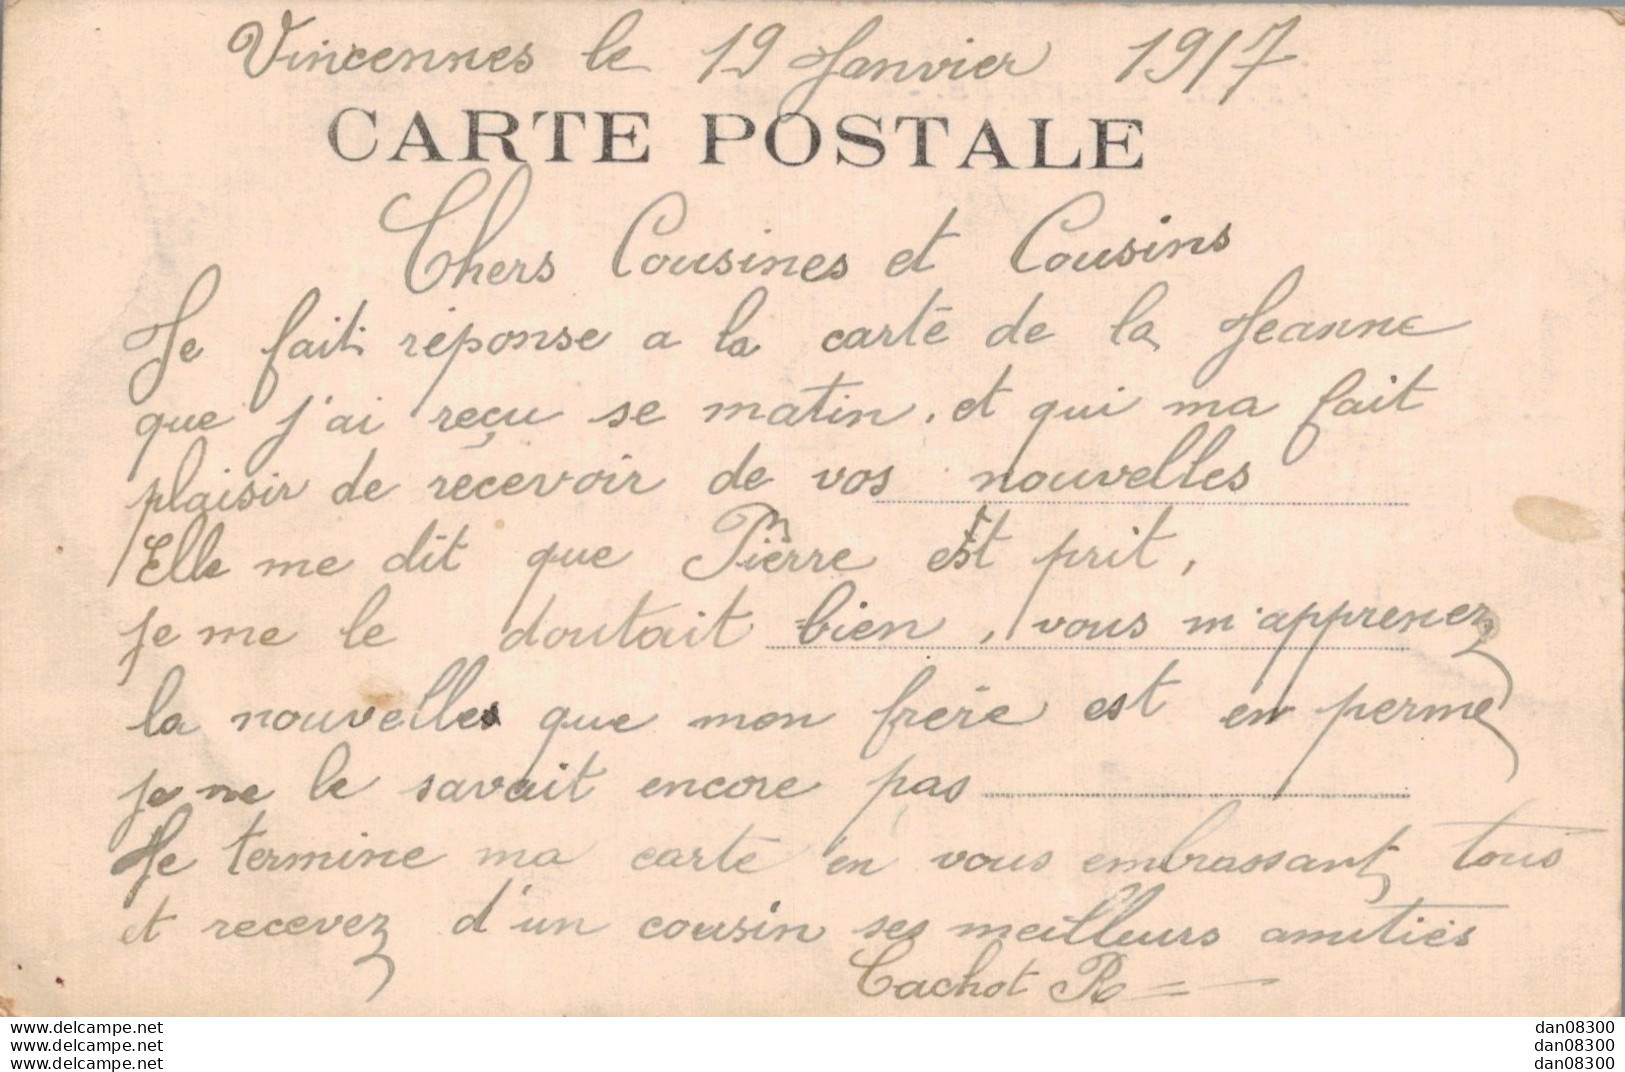 Vincennes le 19 Janvier 1917
CARTE POSTALE
Chers Cousines et Cousins
Je fait réponse a la carte de la Jeanne
que j'ai reçu se matin. et qui ma fait
plaisir de recevoir de vos nouvelles
Elle me dit que Pierre est prit,
je me le doutait bien, vous m'apprenez
la nouvelles que mon frère est en perme
je ne le savait encore pas
Je termine ma carte en vous embrassant tous
et recevez d'un cousin ses meilleurs amitiés
Cachot R
www.delcampe.net
www.delcampe.net
www.delcampe.net
dan08300
dan08300
dan08300